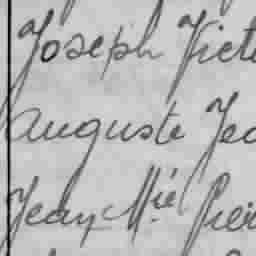 Joseph Vict
Auguste Jea
Jean Mie Pier